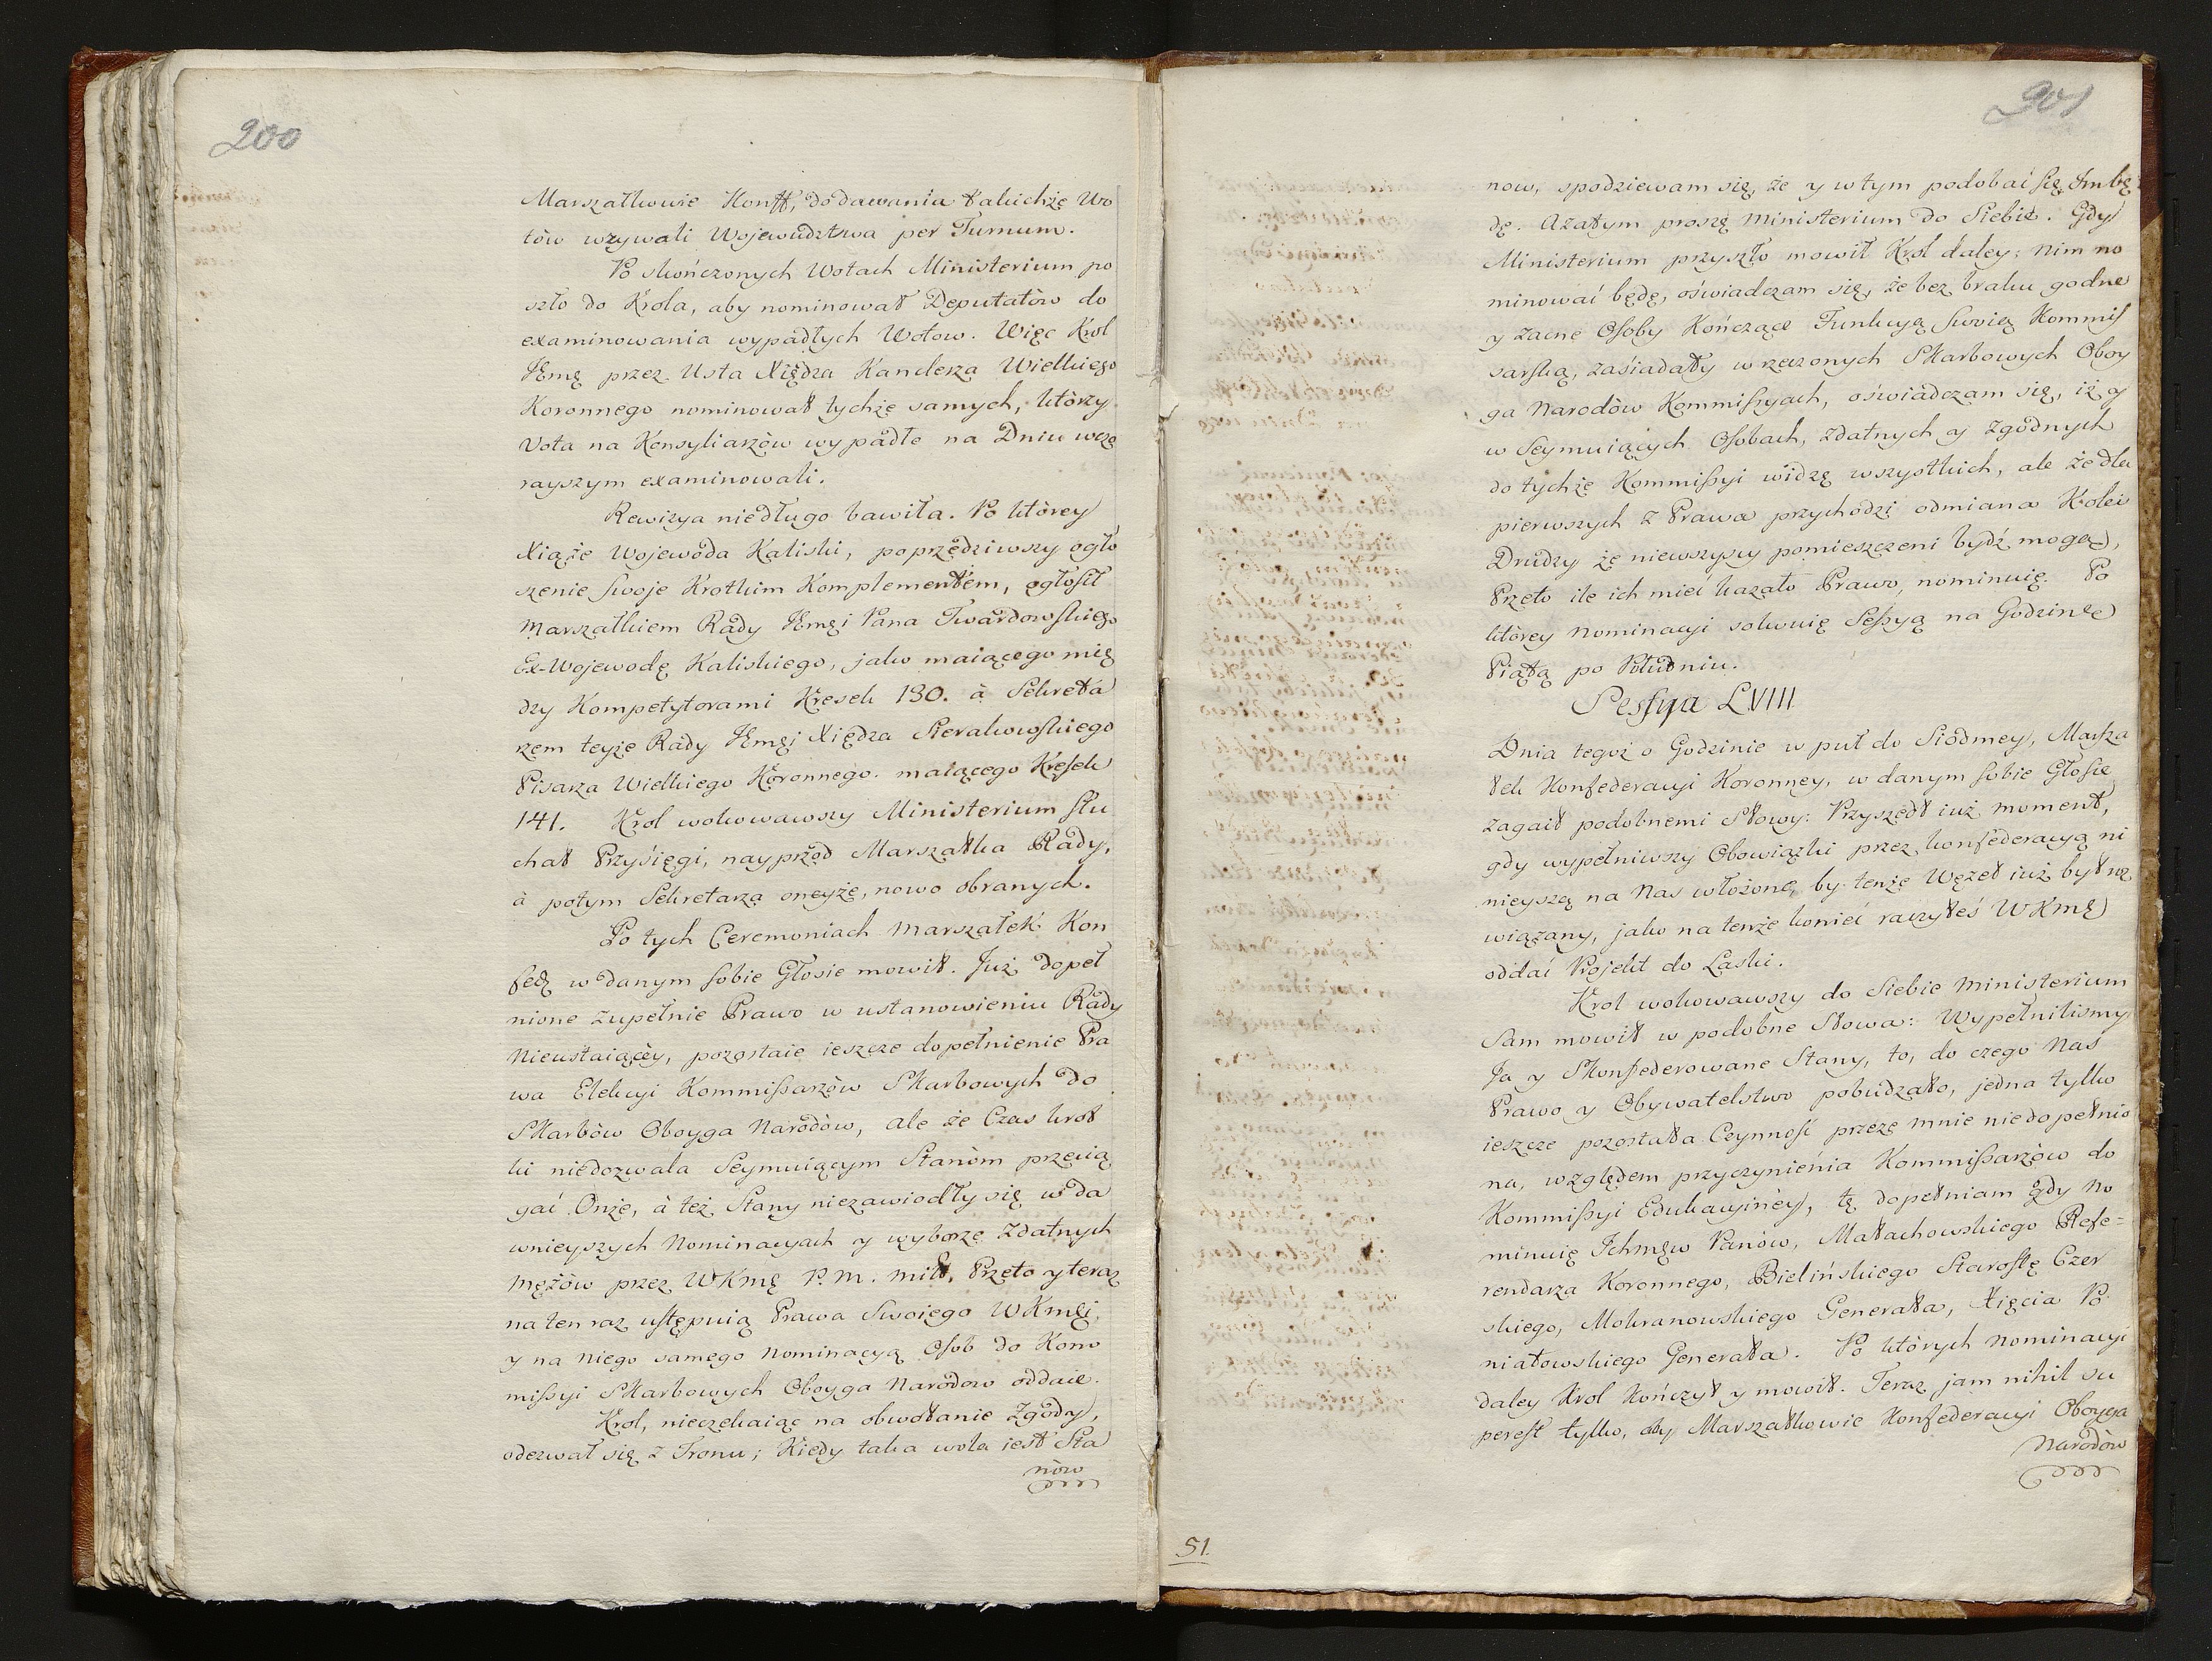 200
Marszałkowie Konff, do dawania takichże Wo
tòw wzywali Wojewudztwa per Turnum.
Po skończonych Wotach Ministerium po
szło do Krola, aby nominował Deputatòw do
examinowania wypadłych Wotow. Więc Krol
JEmę przez Usta Xiędza Kanclerza Wielkiego
Koronnego nominował tychże samych, ktòrzy
Vota na Konsyliarzòw wypadłe na Dniu wczo
rayszym examinowali.
Rewizya niedługo bawiła. Po ktòrey
Xiąże Wojewoda Kaliski, poprzedziwszy ogło
szenie swoje Krotkim Komplementem, ogłosił
Marszałkiem Rady JEmęi Pana Twardowskiego
Ex-Wojewodę Kaliskiego, jako maiącego mię
dzy Kompetytorami Kresek 130. à Sekreta
rzem teyże Rady JEmęi Xiędza Sierakowskiego
Pisarza Wielkiego Koronnego. maiącego Kresek
141. Krol wokowawszy Ministerium słu
chał Przysięgi, nayprzod Marszałka Rady,
à potym Sekretarza oneyże, nowo obranych.
Po tych Ceremoniach Marszałek Kon
fedę w danym sobie Głosie mowił. Już dopeł
nione zupełnie Prawo w ustanowieniu Rady
Nieustaiącey, pozostaie ieszcze dopełnienie Pra
wa Elekcyi Kommissarzòw Skarbowych do
Skarbòw Oboyga Narodòw, ale że Czas krot
ki niedozwala Seymuiącym Stanòm przecią
gać Onże, à też Stany niezawiodły się w da
wnieyszych Nominacyach y wyborze Zdatnych
Mężòw przez WKmę P. M. Mił, Przeto y teraz
na ten raz ustępuią Prawa Swoiego WKmęi,
y na Niego samego Nominacyą Osob do Kom
missyi Skarbowych Oboyga Narodow oddaie.
Krol, nieczekaiąc na obwołanie Zgody,
odezwał się z Tronu; Kiedy taka wola iest Sta
nòw
201
now, spodziewam się, że y w tym podobać się Im bę
dę. Azatym proszę Ministerium do Siebie. Gdy
Ministerium przyszło mowił Krol daley: Nim no
minować będę, oświadczam się, że bez braku godne
y zacne Osoby Kończące Funkcyą Swoię Kommis
sarską, zasiadały w rzeczonych Skarbowych Oboy
ga Narodòw Kommissyach, oświadczam się, iż y
w Seymuiących Osobach, zdatnych y Zgodnych
do tychże Kommissyi widzę wszystkich, ale że dla
pierwszych z Prawa przychodzi odmiana Kolei
Drudzy że niewszyscy pomieszczeni bydź mogą,
Przeto ile ich mieć kazało Prawo, nominuię. Po
ktòrey Nominacyi solwuię Sessyą na Godzinę
Piątą po Południu.
Sessya LVIII
Dnia tegoż o Godzinie w puł do Siodmey, Marsza
łek Konfederacyi Koronney, w danym sobie Głosie
zagaił podobnemi Słowy: Przyszedł iuż moment,
gdy wypełniwszy Obowiązki przez konfederacyą ni
nieyszą na Nas włożone, by tenże Węzeł iuż był roz
wiązany, jako na tenże koniec raczyłeś WKmę
oddać Projekt do Laski.
Krol wokowawszy do Siebie Ministerium
Sam mowił w podobne Słowa: Wypełnilismy
Ja y Skonfederowane Stany, to, do czego Nas
Prawo y Obywatelstwo pobudzało, jedna tylko
ieszcze pozostała Czynnosć przeze mnie niedopełnio
na, względem przyczynienia Kommissarzòw do
Kommissyi Edukacyiney, tę dopełniam gdy No
minuię Ichmęw Panòw, Małachowskiego Refe=
rendarza Koronnego, Bielińskiego Starostę Czer
skiego, Mokranowskiego Generała, Xięcia Po
niatowskiego Generała. Po ktòrych Nominacyi
daley Krol Kończył y mowił. Teraz jam nihil su
perest tylko, aby Marszałkowie Konfederacyi Oboyga
Narodòw
51.